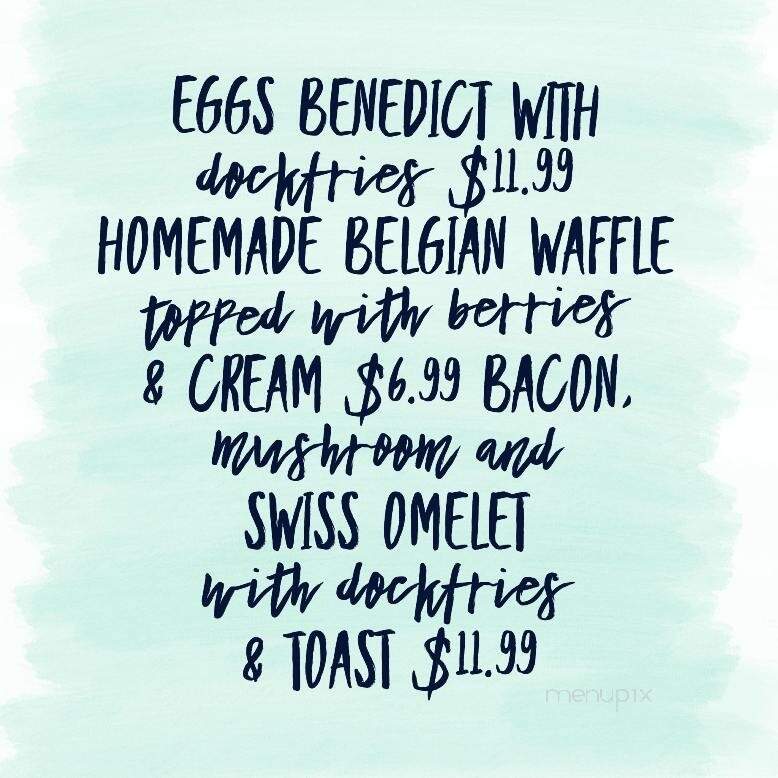 EGGS BENEDICT WITH
dockfries $11.99
HOMEMADE BELGIAN WAFFLE
topped with berries
& CREAM $6.99 BACON,
mushroom and
SWISS OMELET
with dockfries
& TOAST $11.99
menupix